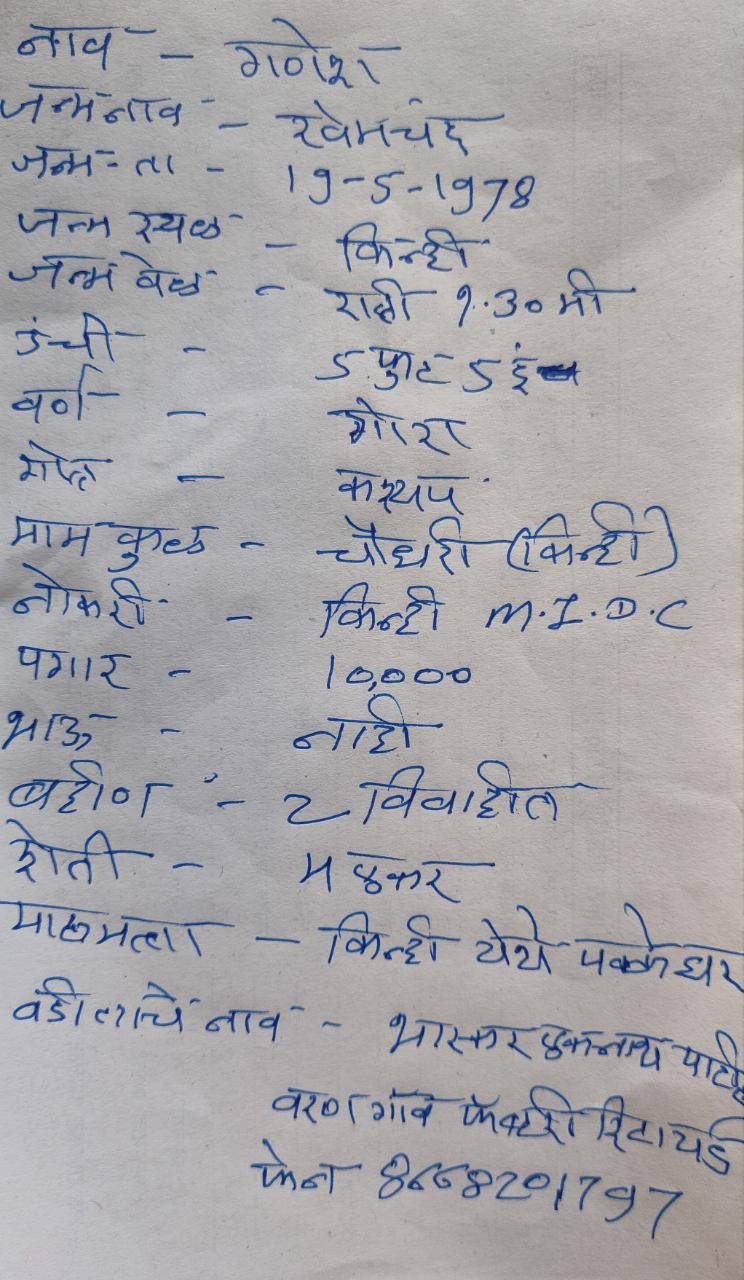 नाव - गणेश
जन्मनाव - खेमचंद
जन्म ता - 19-5-1978
जन्म स्थळ - किन्ही
जन्म वेळ - रात्री 9.30 मी
उंची - 5 फुट 5 इंच
वर्ण - गोरा
गोत्र - कश्यप
माम कुळ - चौधरी (किन्ही)
नोकरी - किन्ही M.I.D.C
पगार - 10,000
भाऊ - नाही
बहीण - 2 विवाहीत
शेती - 4 एकर
मालमत्ता - किन्ही येथे पक्के घर
वडीलाचे नाव - भास्कर एकनाथ पाटील
वरणगाव फॅक्टरी रिटायर्ड
फोन